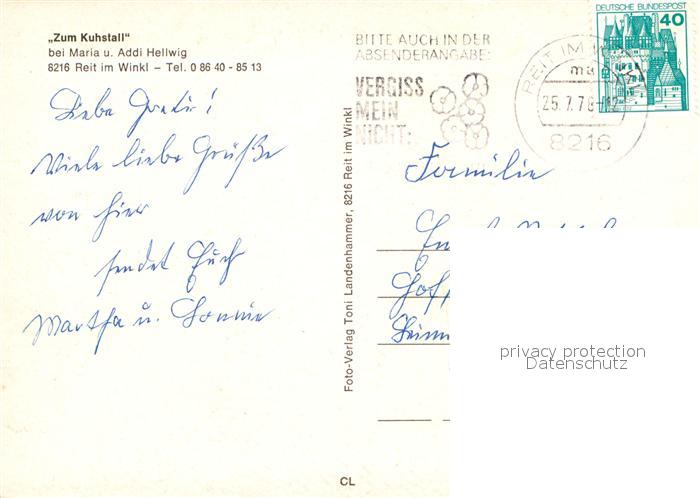 „Zum Kuhstall"
bei Maria u. Addi Hellwig
8216 Reit im Winkl – Tel. 0 86 40 - 85 13
Liebe
Viele liebe Grüße
von hier
sendet Euch
Martha u.
Foto-Verlag Toni Landenhammer, 8216 Reit im Winkl
CL
BITTE AUCH IN DER
ABSENDERANGABE:
VERGISS
MEIN
NICHT:
REIT IM WINKL
25.7.78
8216
DEUTSCHE BUNDESPOST
40
Familie
privacy protection
Datenschutz